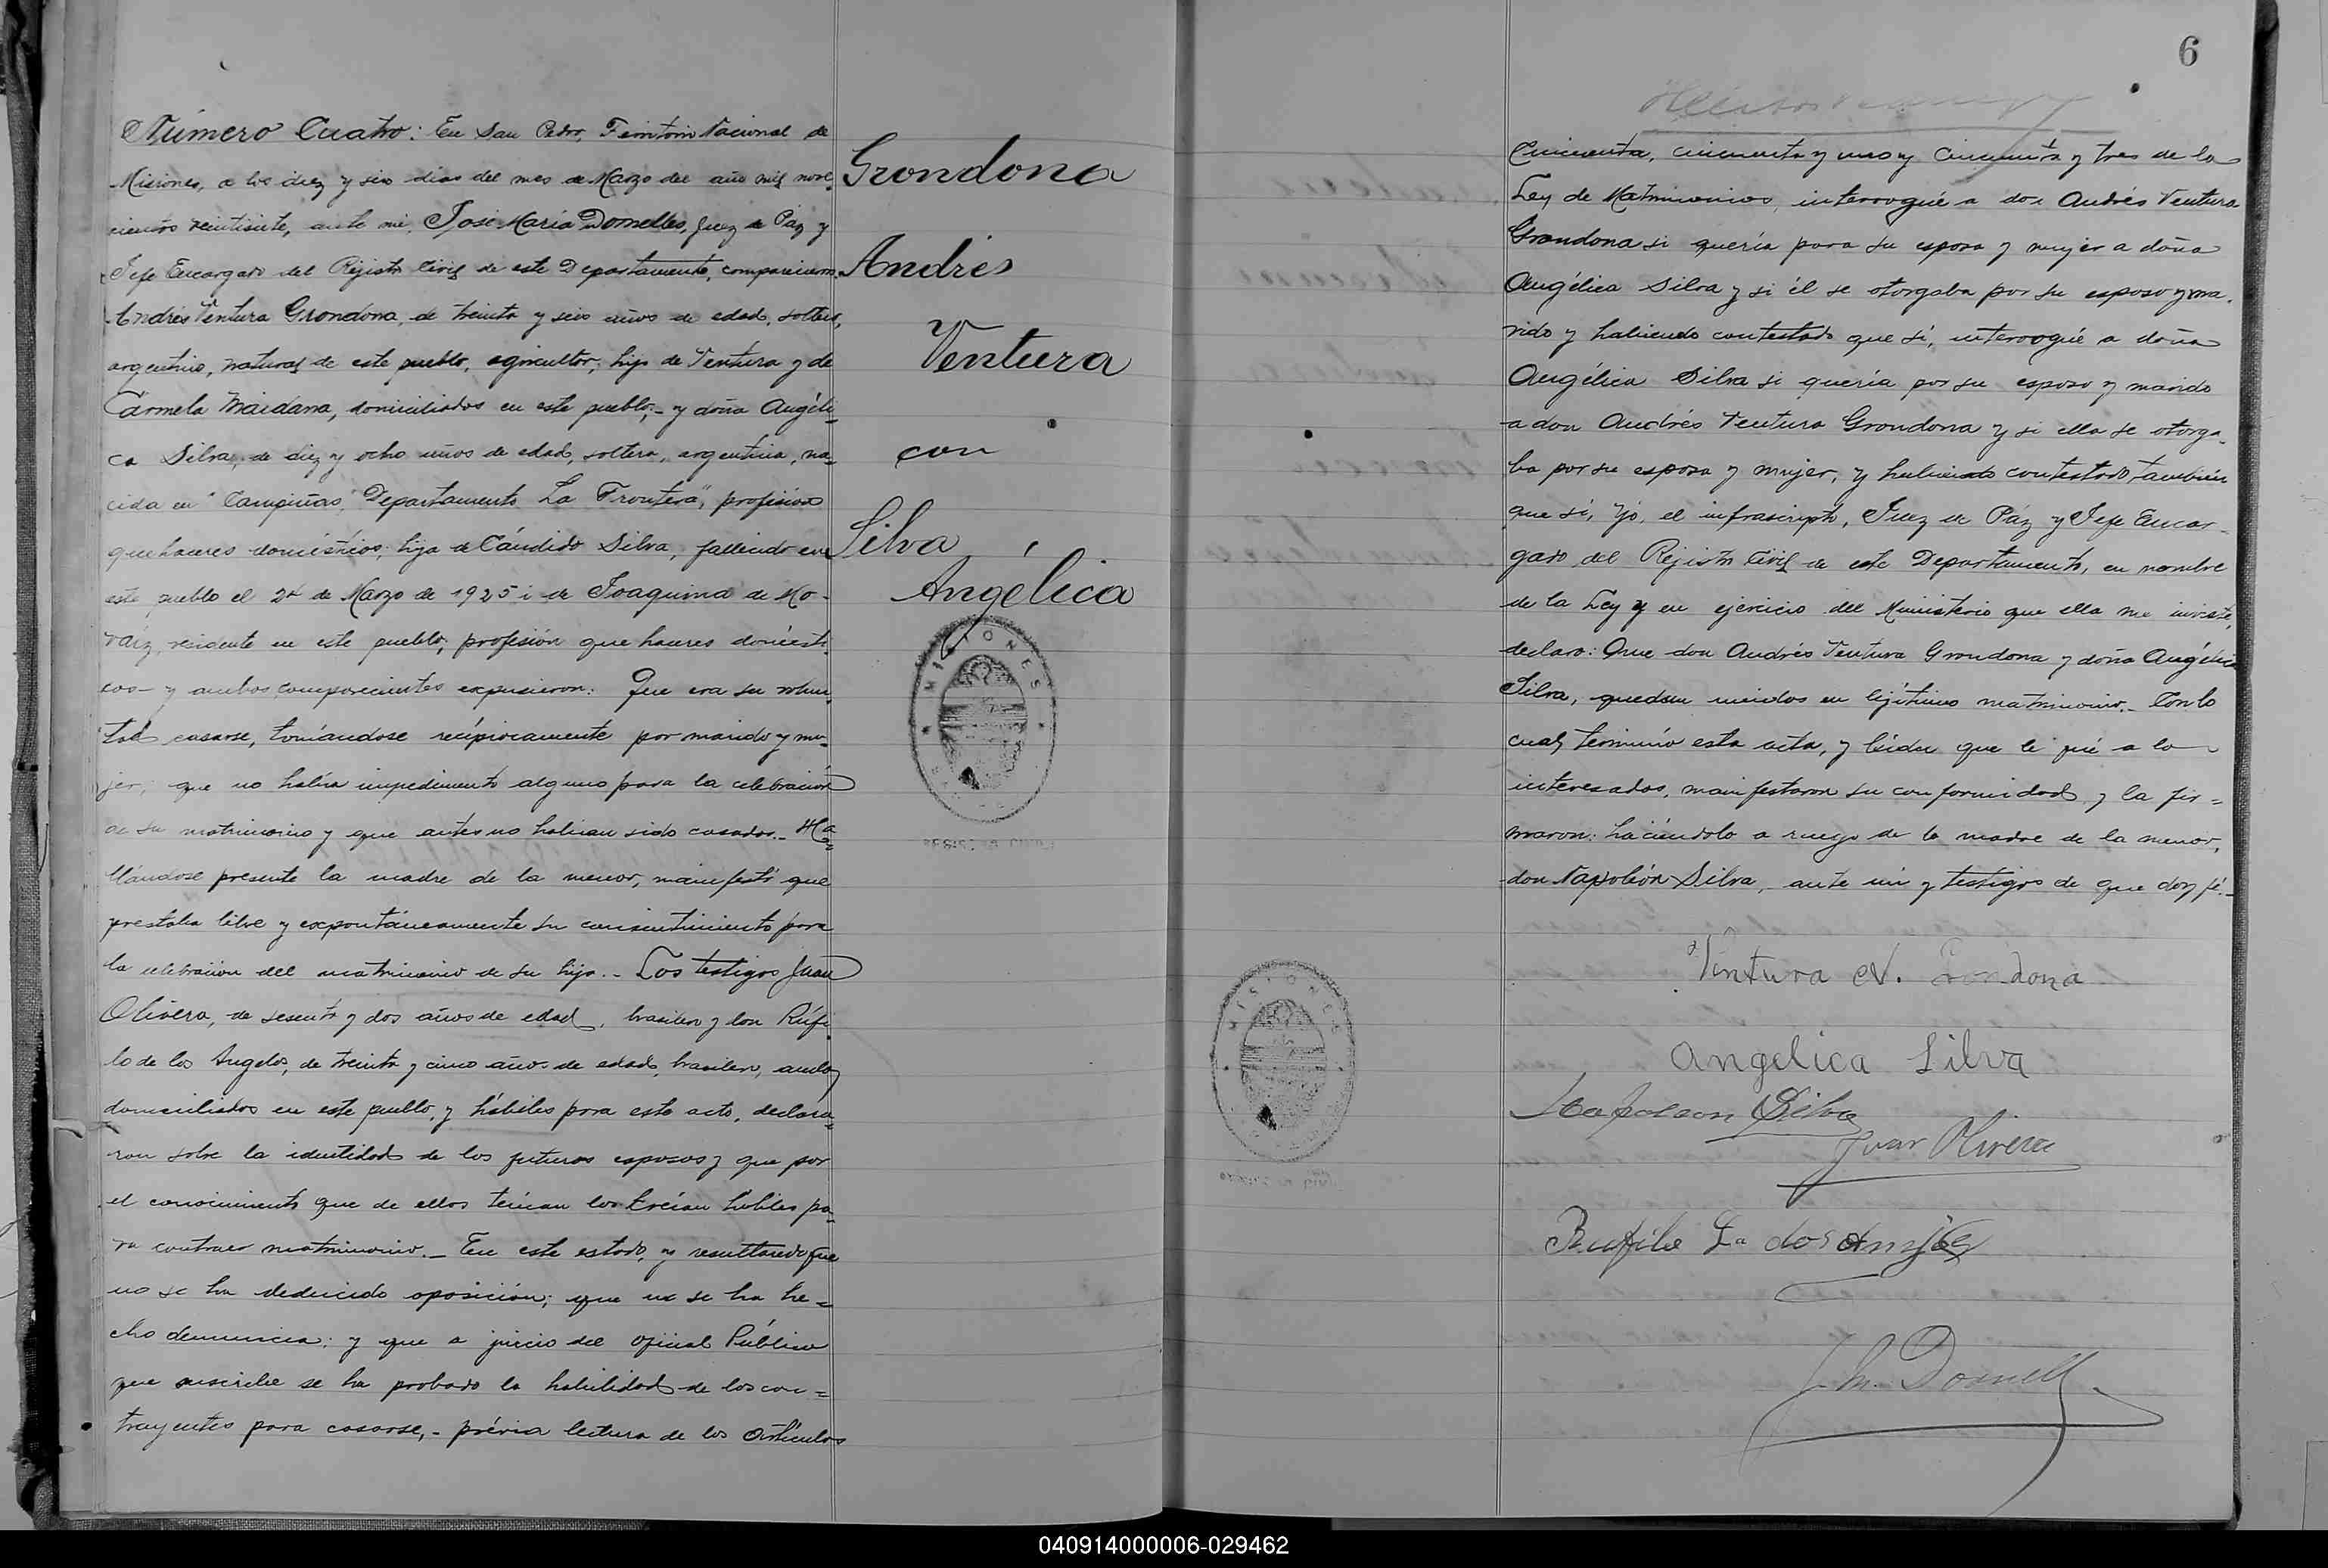 Número Cuatro: En San Pedro, Territorio Nacional de
Misiones, a los diez y seis dias del mes de Marzo del año mil nove-
cientos veintisiete, ante mi, José María Dornelles, Juez de Paz y
Jefe Encargado del Rejistro Civil de este Departamento, comparecieron
Andrés Ventura Grondona, de treinta y seis años de edad, soltero,
argentino, natural de este pueblo, agricultor, hijo de Ventura y de
Carmela Maidana, domiciliados en este pueblo; y doña Angéli-
ca Silva, de diez y ocho años de edad, soltera, argentina, na-
cida en "Campiñas", Departamento La Frontera", profesión
quehaceres domésticos, hija de Cándido Silva, fallecido en
este pueblo el 24 de Marzo de 1925 i de Joaquina de Mo-
raiz, residente en este pueblo, profesión que haceres domésti-
cos- y ambos comparecientes expusieron: Que era su volun-
tad casarse, tomándose recíprocamente por marido y mu-
jer, que no había impedimento alguno para la celebración
de su matrimonio y que antes no habian sido casados.- Ha-
llándose presente la madre de la menor, manifestó que
prestaba libre y expontáneamente su consentimiento para
la celebracion del matrimonio de su hija.- Los testigos Juan
Olivera, de sesenta y dos años de edad, brasilero y don Rúfi-
lo de los Angelos, de treinta y cinco años de edad, brasilero, ambos
domiciliados en este pueblo, y hábiles para este acto, declara-
ron sobre la identidad de los futuros esposos y que por
el conocimiento que de ellos tenian los creian habiles pa-
ra contraer matrimonio.- En este estado, y resultando que
no se ha deducido oposición; que no se ha he-
cho denuncia; y que a juicio del oficial Público
que suscribe se ha probado la habilidad de los con-
trayentes para casarse,- prévia lectura de los artículos
Grondona
Andrés
Ventura
con
Silva,
Angélica
MISIONES
REGISTRO CIVIL
6
Cincuenta, cincuenta y uno y cincuenta y tres de la
Ley de Matrimonios, interrogué a don Andrés Ventura
Grondona si quería para su esposa y mujer a doña
Angélica Silva y si él se otorgaba por su esposo y ma-
rido y habiendo contestado que si, interrogué a doña
Angélica Silva si quería por su esposo y marido
a don Andrés Ventura Grondona y si ella se otorga-
ba por su esposa y mujer, y habiendo contestado tambien
que si, yo, el infrascripto, Juez de Paz y Jefe Encar-
gado del Rejistro Civil de este Departamento, en nombre
de la Ley y en ejercicio del Ministerio que ella me inviste,
declaro: Que don Andrés Ventura Grondona y doña Angélica
Silva, quedan unidos en lejítimo matrimonio.- Con lo
cual terminó esta acta, y leida que le fué a lo
interesados, manifestaron su conformidad y la fir-
maron: haciéndolo a ruego de la madre de la menor,
don Napoleón Silva, ante mi y testigos de que doy fé.-
Ventura A. Grondona
Angelica Silva
Napoleon Silva
Juan Olivera
Rufilo
J. M. Dornell
MISIONES
040914000006-029462